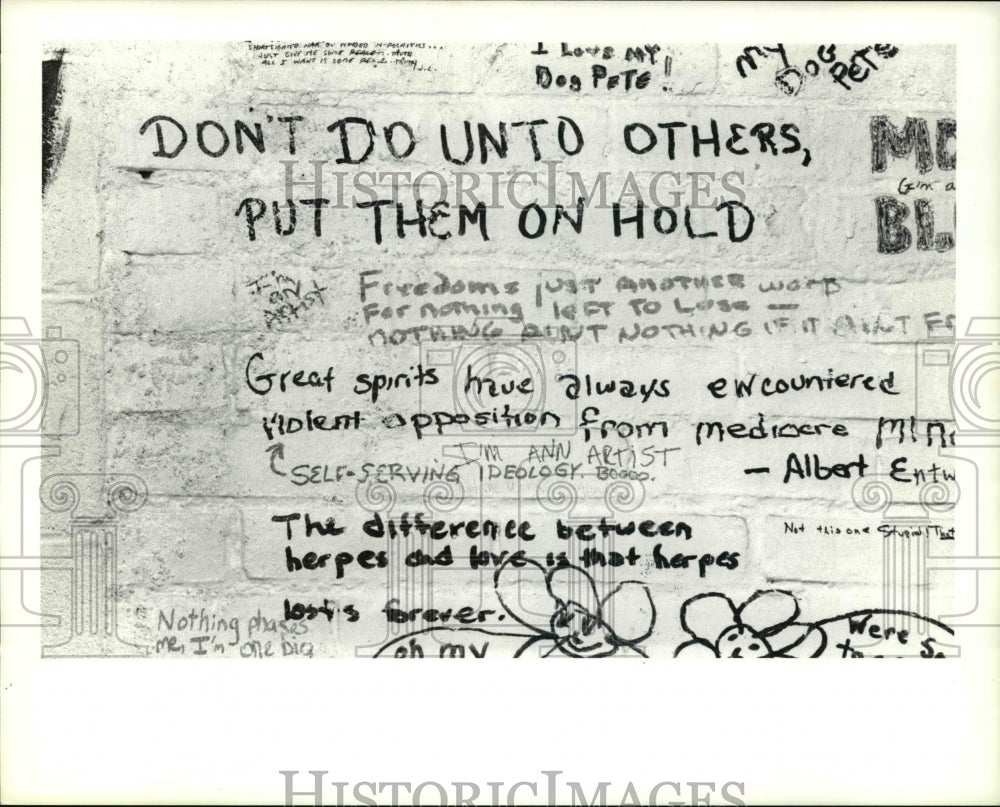 JUST GIVE ME SOME
ALL I WANT IS SOME TRUTH
J.L.
I LOVE MY
DOG PETE!
MY
DOG
PETE
DON'T DO UNTO OTHERS,
PUT THEM ON HOLD
MO
BL
I'm
AN
ARTIST
Freedoms just ANOTHER WORD
For nothing left TO LOSE —
NOTHING AINT NOTHING IF IT AINT FR
Great spirits have always encountered
violent opposition from mediocre MIN
— Albert Entw
I'M ANN ARTIST
SELF-SERVING IDEOLOGY. BOOOO.
Not this one Stupid! That
The difference between
herpes and love is that herpes
lasts forever.
Nothing phases
me, I'm one big
oh my
Were S
HISTORIC IMAGES
HISTORIC IMAGES